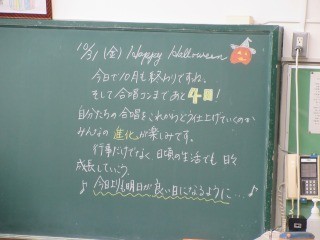 10/31 (金) Happy Halloween
今日で10月も終わりですね。
そして合唱コンまであと4日!
自分たちの合唱をこれからどう仕上げていくのか
みんなの進化が楽しみです。
行事だけでなく日頃の生活でも日々
成長していこう。
♪ 今日よりも明日が良い日になるように… ♪